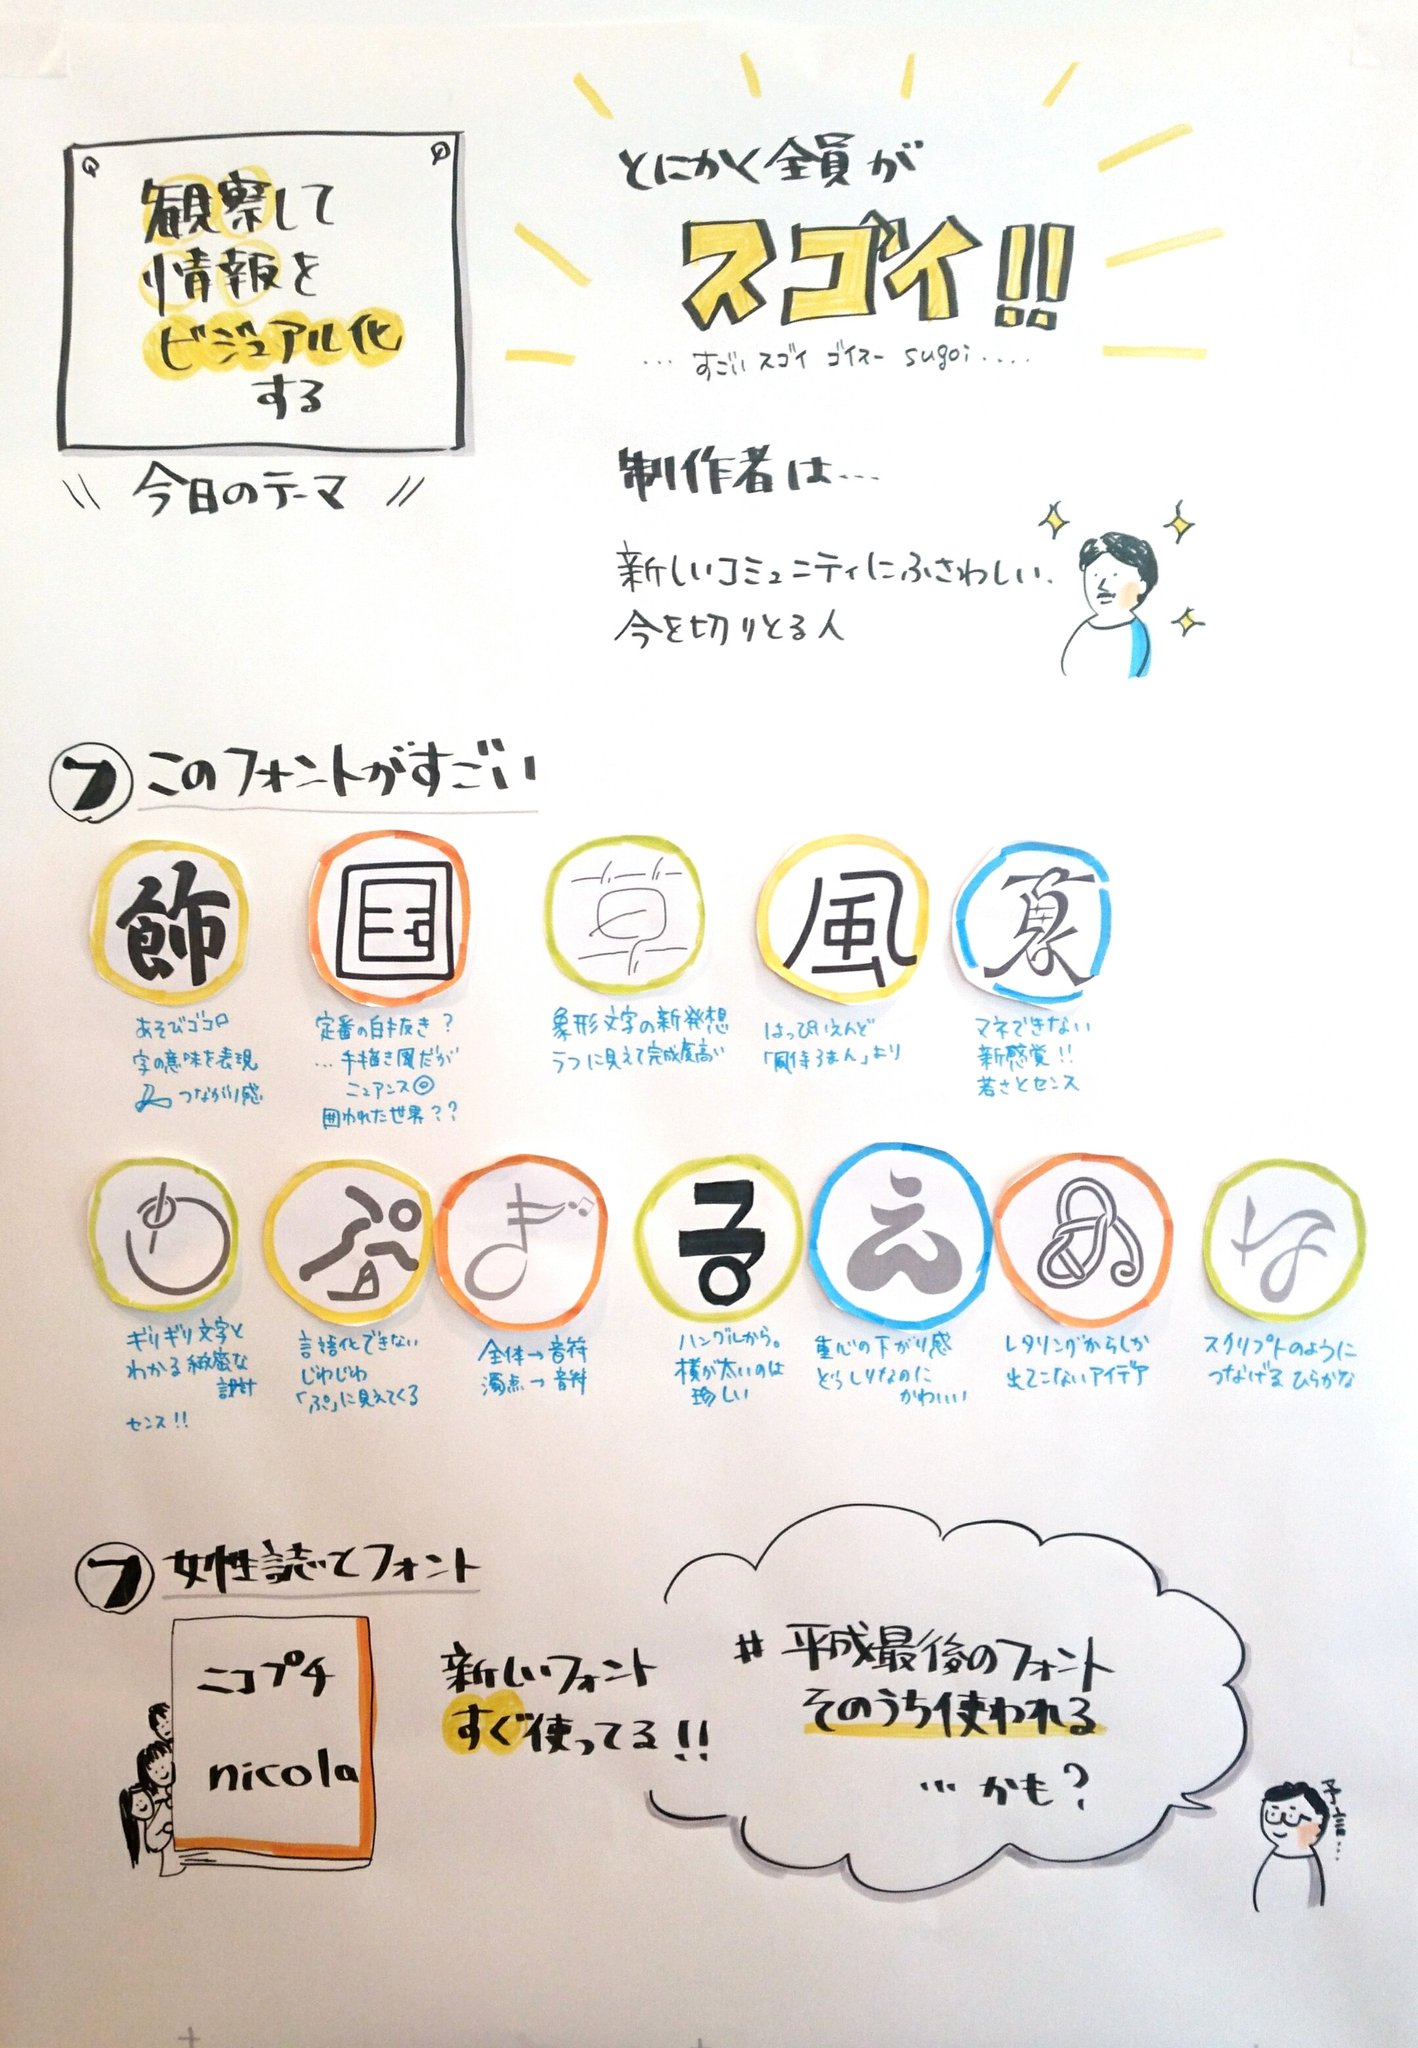 観察して
情報を
ビジュアル化
する
今日のテーマ
とにかく全員が
スゴイ!!
… すごい スゴイ ゴイスー sugoi ‥‥
制作者は…
新しいコミュニティにふさわしい、
今を切りとる人
フ このフォントがすごい
飾
あそびゴコロ
字の意味を表現
つながり感
国
定番の白抜き?
…手描き風だが
ニュアンス◎
囲われた世界??
草
象形文字の新発想
ラフに見えて完成度高い
風
はっぴいえんど
「風待ろまん」より
夏
マネできない
新感覚!!
若さとセンス
ギリギリ文字と
わかる緻密な
設計
センス!!
ぷ
言語化できない
じわじわ
「ぷ」に見えてくる
ぎ
全体→音符
濁点→音符
ハングルから。
横が太いのは
珍しい
え
重心の下がり感
どっしりなのに
かわいい
あ
レタリングからしか
出てこないアイデア
な
スクリプトのように
つなげるひらがな
フ 女性誌とフォント
ニコプチ
nicola
新しいフォント
すぐ使ってる!!
#平成最後のフォント
そのうち使われる
…かも?
予言…